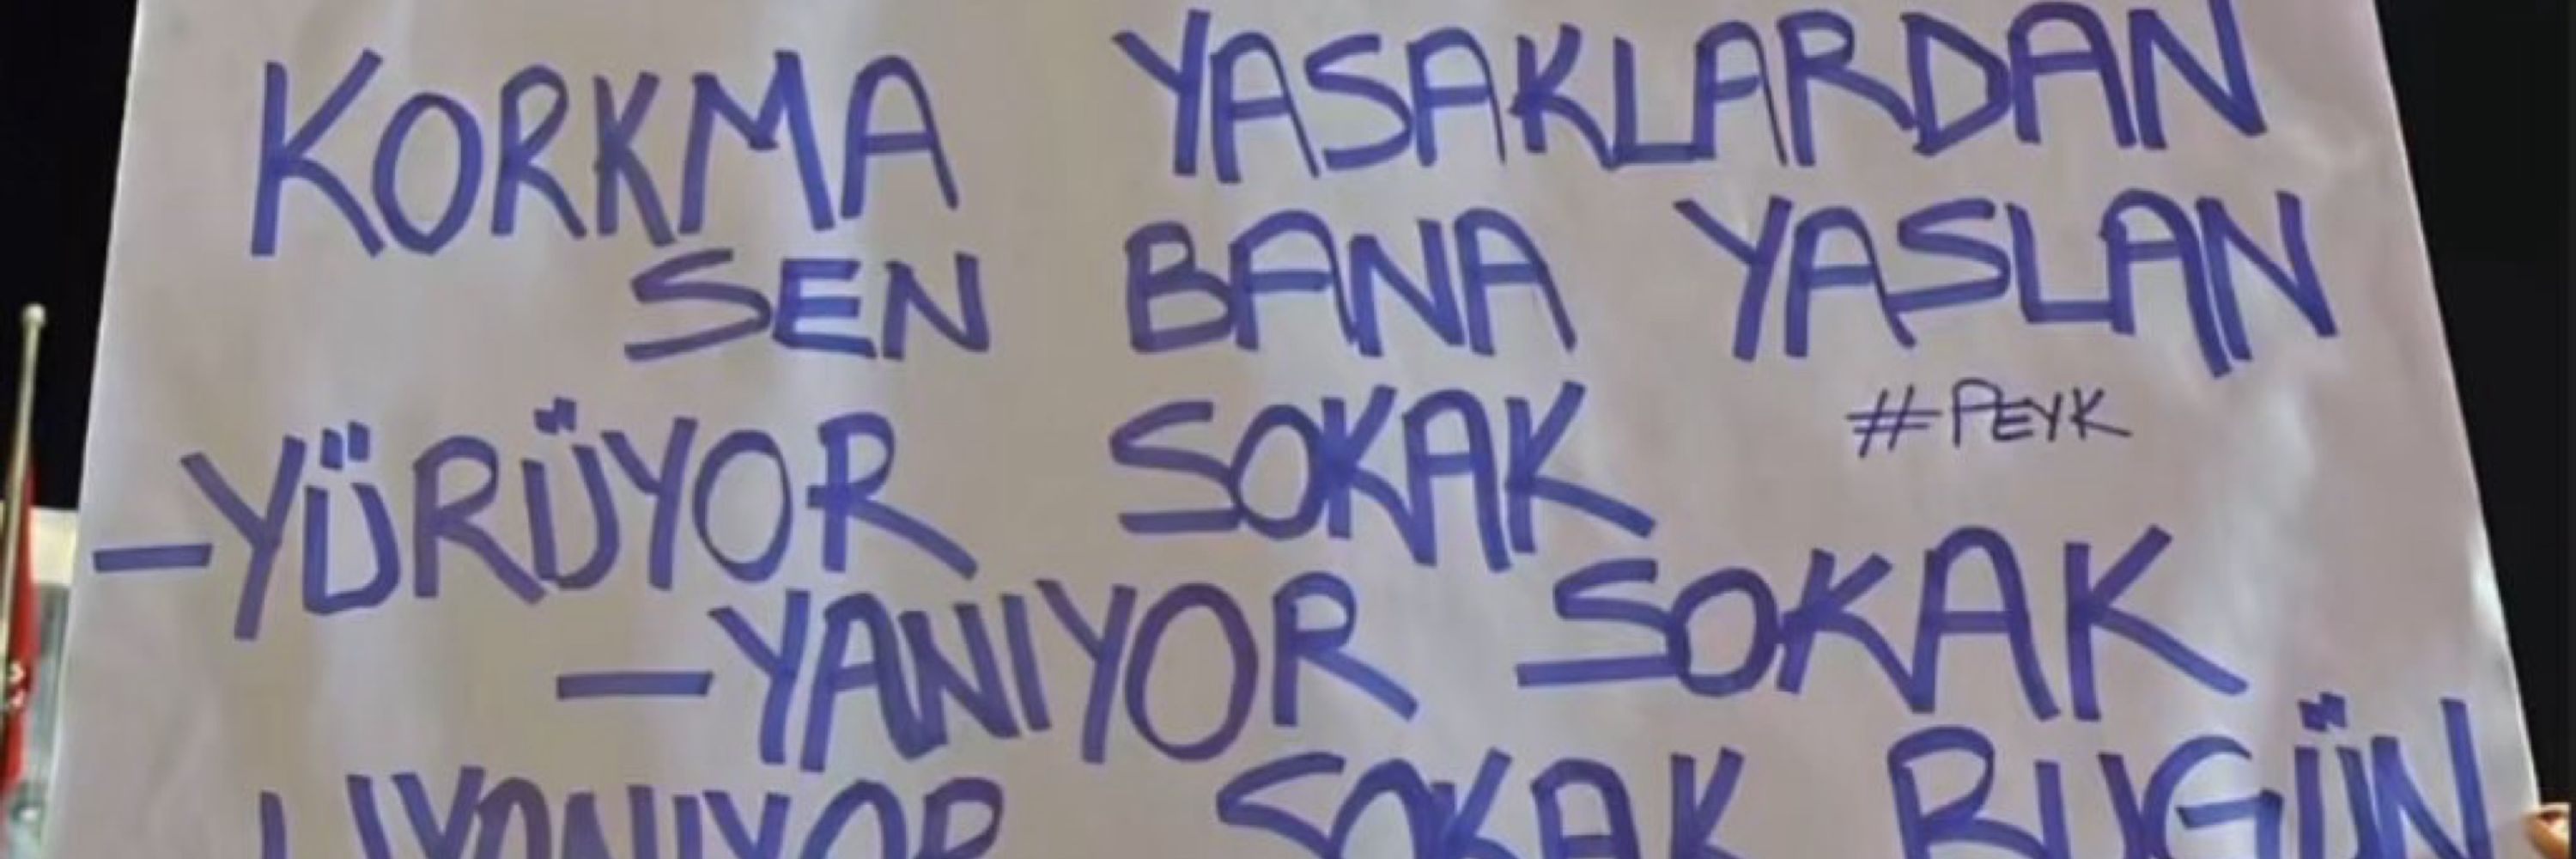 KORKMA YASAKLARDAN
SEN BANA YASLAN
#PEYK
-YÜRÜYOR SOKAK
-YANIYOR SOKAK
UYANIYOR SOKAK BUGÜN